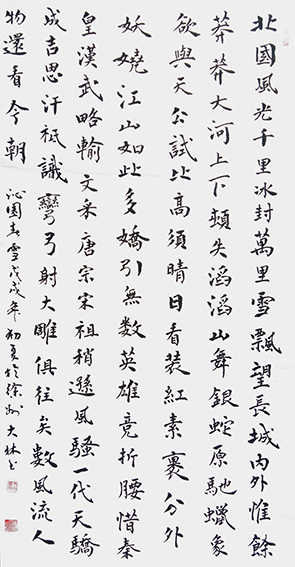 北國風光千里冰封萬里雪飄望長城内外惟餘
莽莽大河上下頓失滔滔山舞銀蛇原馳蠟象
欲與天公試比高須晴日看装紅素裹分外
妖嬈江山如此多嬌引無数英雄竞折腰惜秦
皇漢武略輸文采唐宗宋祖稍遜風騷一代天驕
成吉思汗祇識彎弓射大雕俱往矣數風流人
物還看今朝 沁園春雪戊戌年初夏於徐州大林书